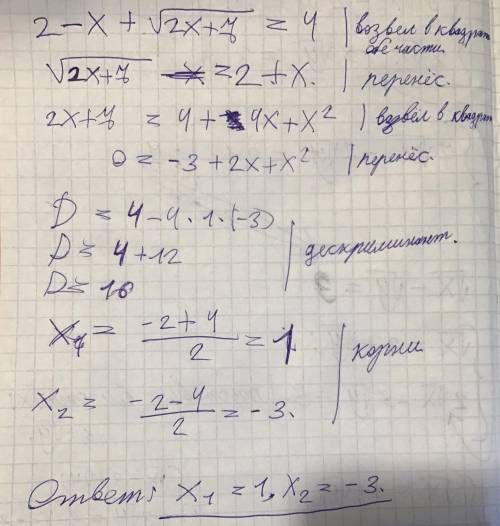 2 - x + √(2x+7) = 4 | возвёл в квадрат обе части.
√(2x+7) = 2 + x. | перенёс.
2x+7 = 4 + 4x + x² | возвёл в квадрат
0 = -3 + 2x + x² | перенёс.
D = 4 - 4 · 1 · (-3)
D = 4 + 12 | дескриминант.
D = 16
x₁ = (-2+4)/2 = 1 | корни
x₂ = (-2-4)/2 = -3.
Ответ: x₁ = 1, x₂ = -3.